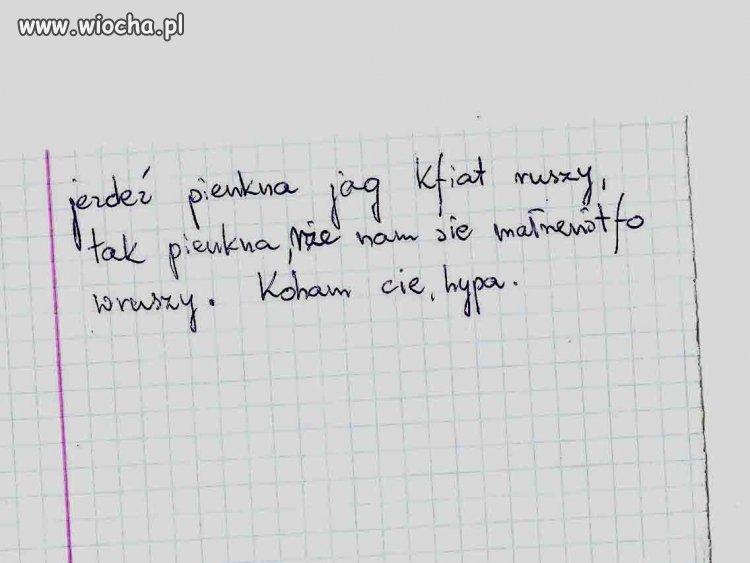 www.wiocha.pl
jezdeź pienkna jag kfiat ruszy,
tak pienkna, rze nam sie małrzeństfo
wruszy. Koham cie, hypa.